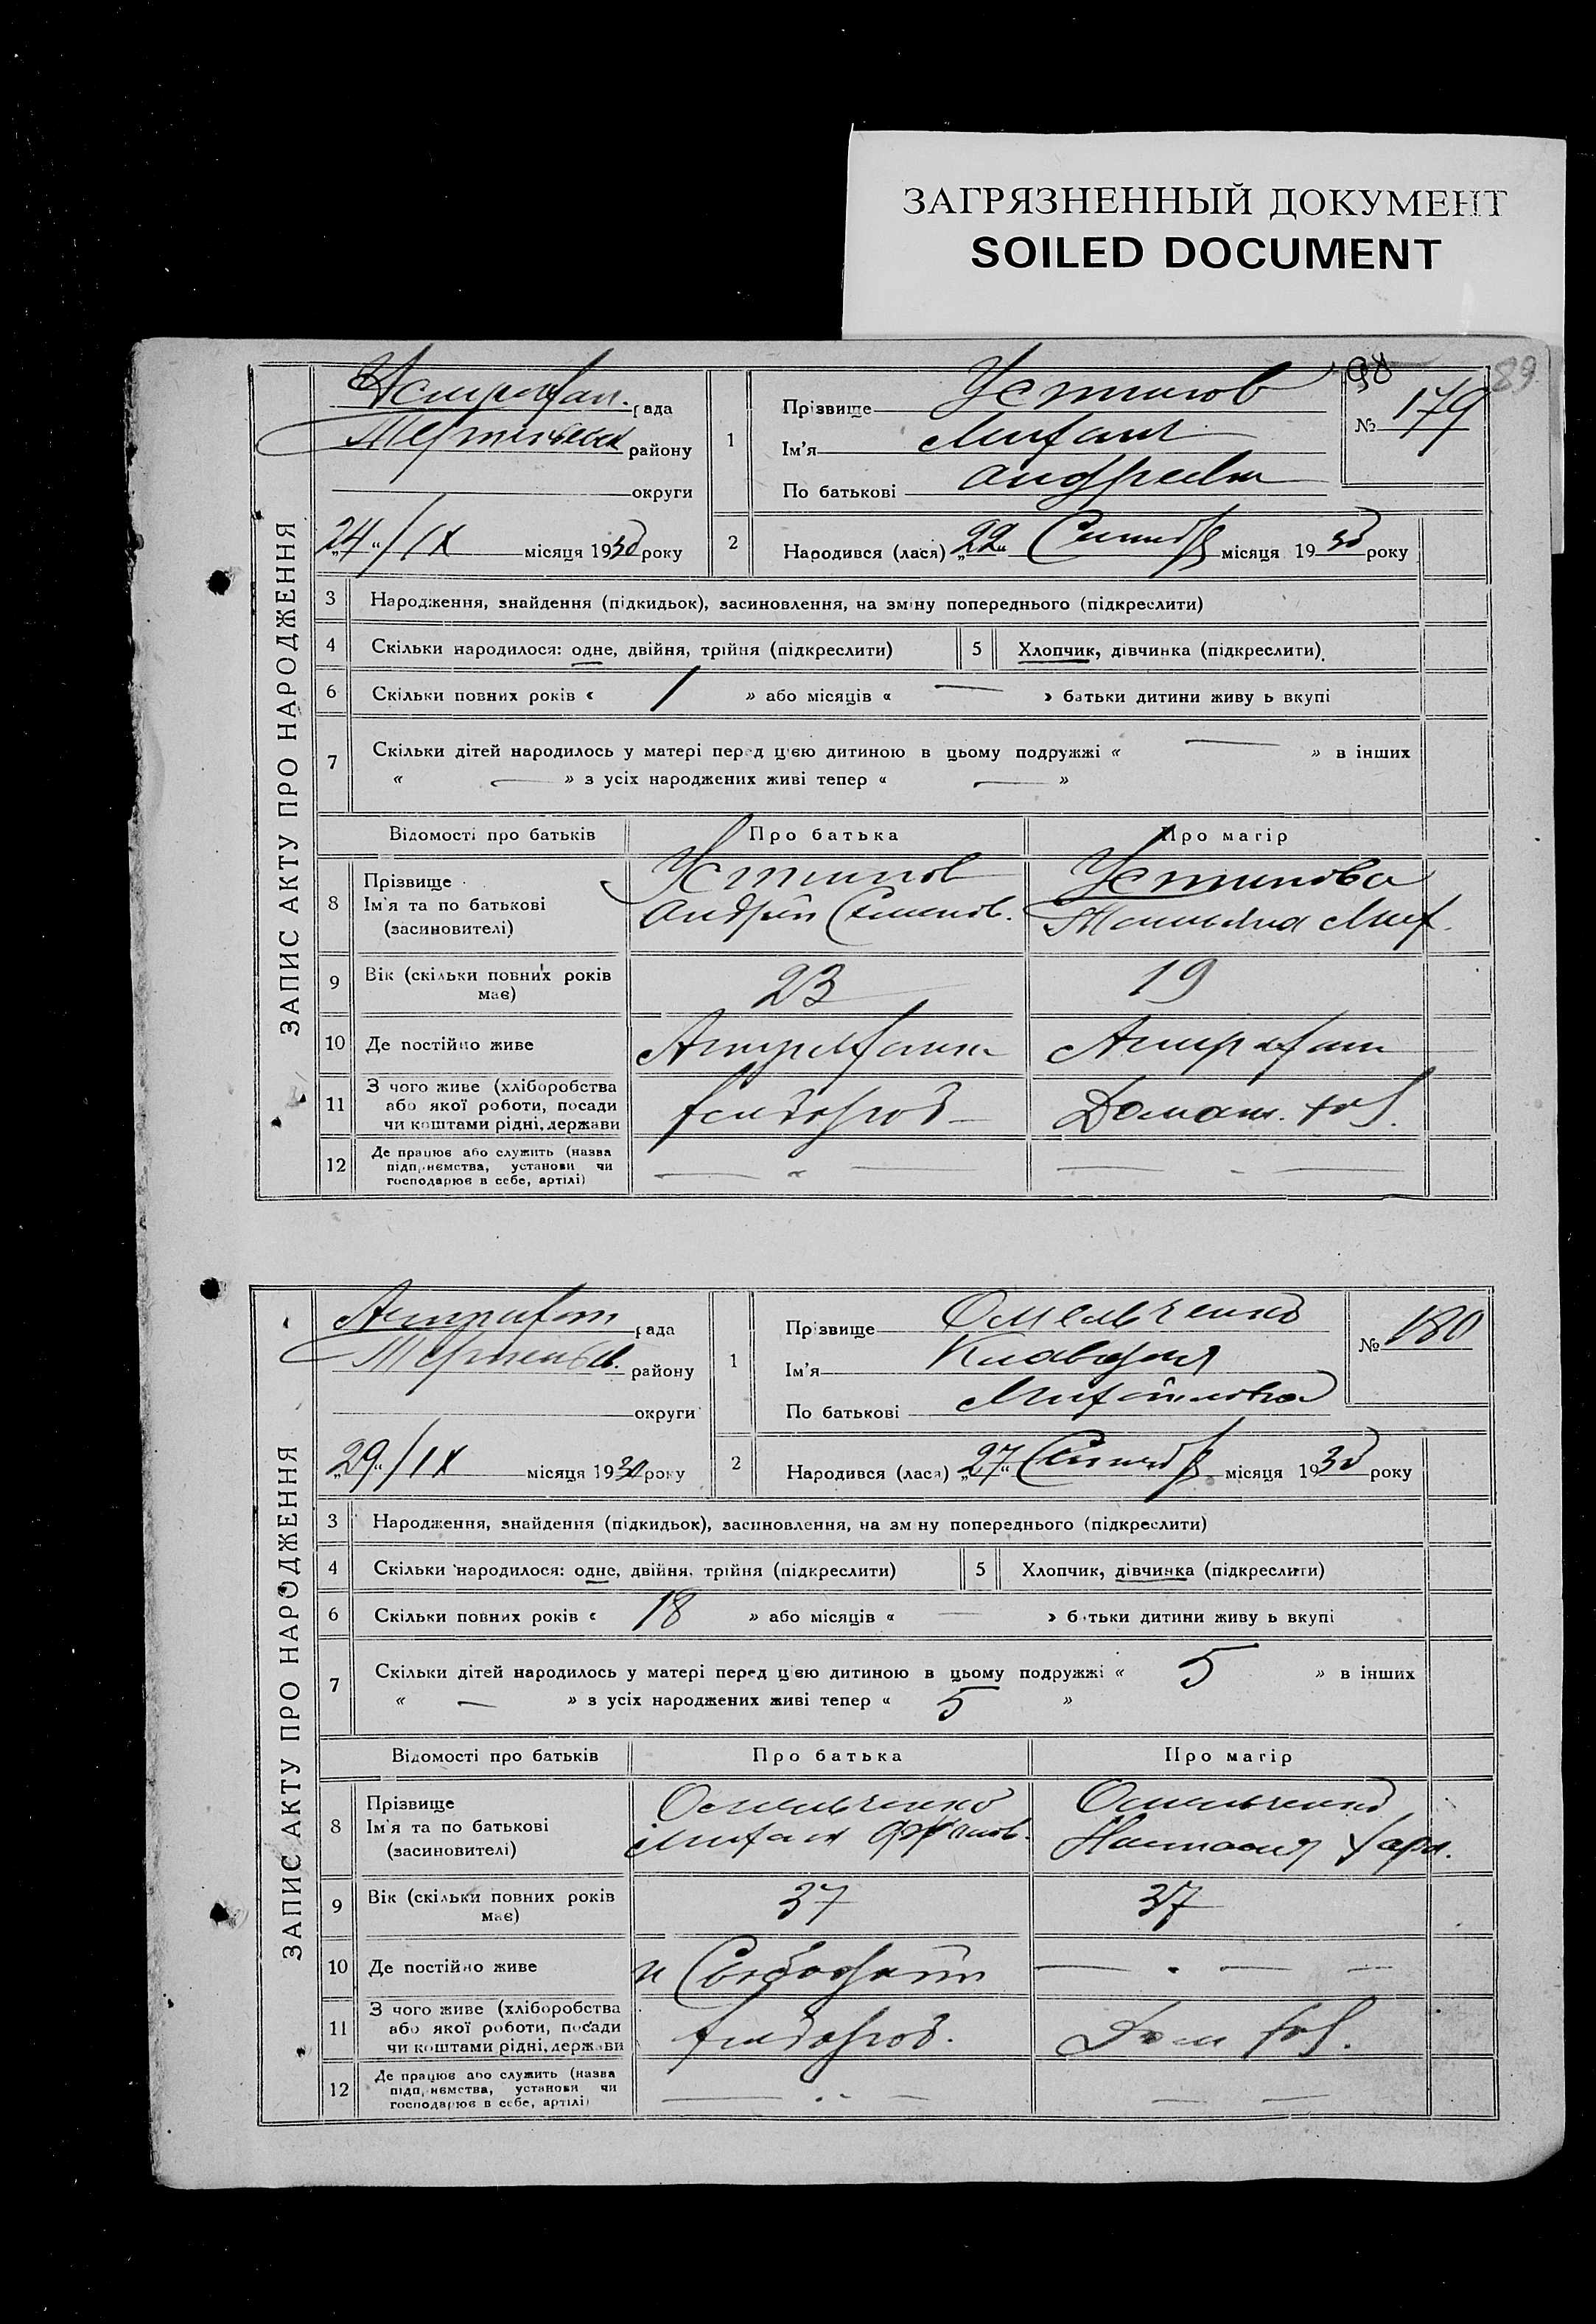 ЗАГРЯЗНЕННЫЙ ДОКУМЕНТ
SOILED DOCUMENT
98
89
ЗАПИС АКТУ ПРО НАРОДЖЕННЯ
рада
району
округи
„24“/IX місяця 1930 року
1
Прізвище Устинов
Ім'я Михаил
По батькові
№ 179
2
Народився (лася) „22“ місяця 1930 року
3 Народження, знайдення (підкидьок), засиновлення, на зміну попереднього (підкреслити)
4 Скільки народилося: одне, двійня, трійня (підкреслити) 5 Хлопчик, дівчинка (підкреслити)
6 Скільки повних років « 1 » або місяців « — » батьки дитини живу ь вкупі
7 Скільки дітей народилось у матері перед цією дитиною в цьому подружжі « — » в інших
« — » з усіх народжених живі тепер « — »
Відомості про батьків Про батька Про матір
8 Прізвище Устинов Устинова
Ім'я та по батькові Андрій Семенов. Татьяна Мих.
(засиновителі)
9 Вік (скільки повних років має) 23 19
10 Де постійно живе
11 З чого живе (хліборобства
або якої роботи, посади Домаш.
чи коштами рідні, держави
12 Де працює або служить (назва
підприємства, установи чи
господарює в себе, артілі)
ЗАПИС АКТУ ПРО НАРОДЖЕННЯ
рада
району
округи
„29“/IX місяця 1930 року
1
Прізвище Омельченко
Ім'я Клавдия
По батькові Михайловна
№ 180
2
Народився (лася) „27“ місяця 1930 року
3 Народження, знайдення (підкидьок), засиновлення, на зміну попереднього (підкреслити)
4 Скільки народилося: одне, двійня, трійня (підкреслити) 5 Хлопчик, дівчинка (підкреслити)
6 Скільки повних років « 18 » або місяців « — » батьки дитини живу ь вкупі
7 Скільки дітей народилось у матері перед цією дитиною в цьому подружжі « 5 » в інших
« — » з усіх народжених живі тепер « 5 »
Відомості про батьків Про батька Про матір
8 Прізвище Омельченко Омельченко
Ім'я та по батькові Михаил Настасия
(засиновителі)
9 Вік (скільки повних років має) 37 37
10 Де постійно живе
11 З чого живе (хліборобства
або якої роботи, посади Дом
чи коштами рідні, держави
12 Де працює або служить (назва
підприємства, установи чи
господарює в себе, артілі)